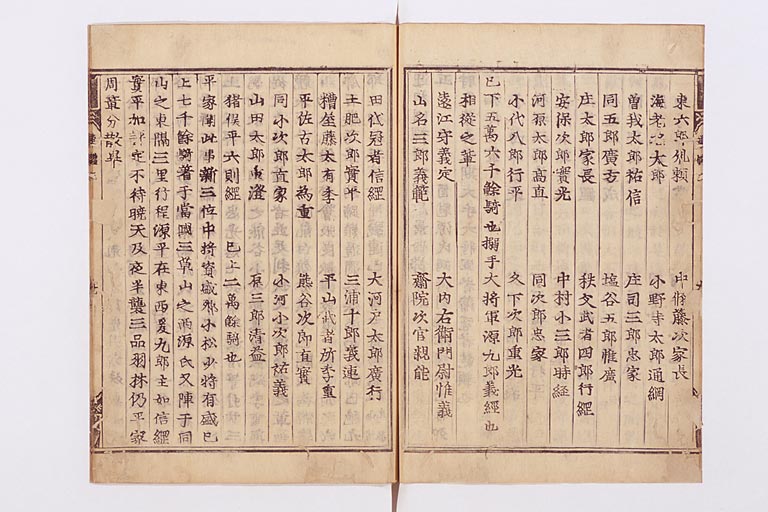 東六郎胤頼　中條藤次家長
海老名太郎　小野寺太郎通綱
曽我太郎祐信　庄司三郎忠家
同五郎廣方　塩谷五郎惟廣
庄太郎家長　秩父武者四郎行經
安保次郎實光　中村小三郎時経
河原太郎高直　同次郎忠家
小代八郎行平　久下次郎重光
已下五萬六千餘騎也搦手大将軍源九郎義經也
相從之輩
遠江守義定　大内右衛門尉惟義
山名三郎義範　齋院次官親能
田代冠者信經　大河戸太郎廣行
土肥次郎實平　三浦十郎義連
糟屋藤太有季　平山武者所季重
平佐古太郎為重　熊谷次郎直實
同小次郎直家　小河小次郎祐義
山田太郎重澄　原三郎清益
猪俣平六則經　已上二萬餘騎也
平家聞此事新三位中将資盛卿小松少将有盛已
上七千餘騎着于當國三草山之西源氏又陣于同
山之東隔三里行程源平在東西爰九郎主如信經
實平加評定不待曉天及夜半襲三品羽林仍平家
周章分散畢